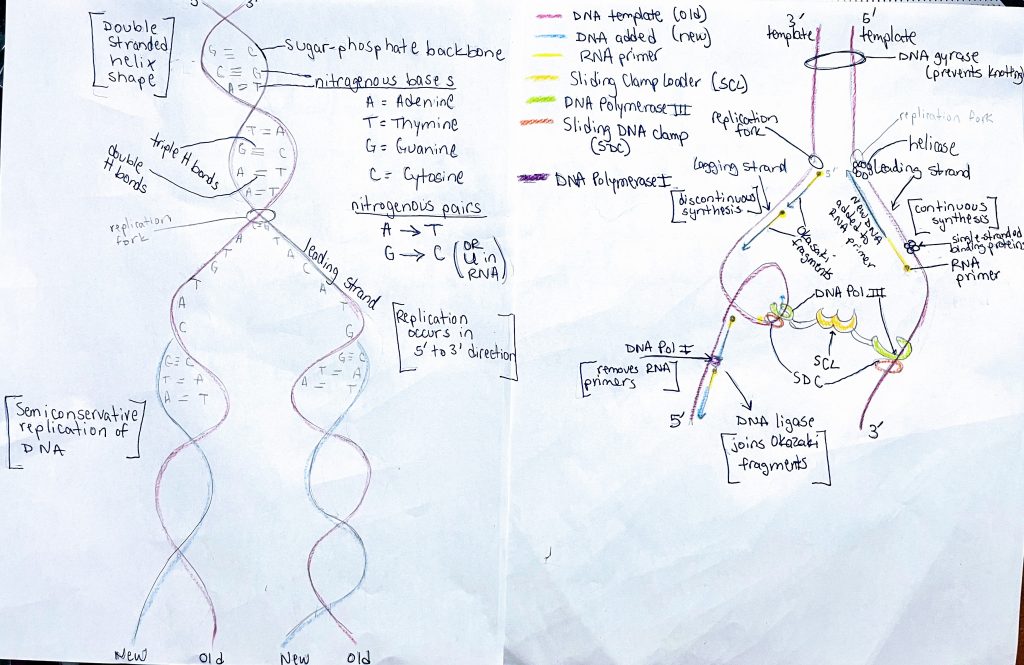 5'
3'
[Double
Stranded
helix
shape]
G ≡ C
C ≡ G
A = T
Sugar-phosphate backbone
nitrogenous bases
A = Adenine
T = Thymine
G = Guanine
C = Cytosine
T = A
G ≡ C
A = T
A = T
triple H bonds
double
H bonds
replication
fork
nitrogenous pairs
A → T
G → C (OR
U in
RNA)
leading strand
A
T
G
T
A
C
T
A
C
A
T
G
[Replication
occurs in
5' to 3' direction]
G ≡ C
T = A
A = T
G ≡ C
T = A
A = T
[Semiconservative
replication of
DNA]
New
Old
New
Old
DNA template (old)
DNA added (new)
RNA primer
Sliding Clamp Loader (SCL)
DNA Polymerase III
Sliding DNA clamp
(SDC)
DNA Polymerase I
3'
template
5'
template
DNA gyrase
(prevents knotting)
replication
fork
replication fork
helicase
Lagging strand
[discontinuous
synthesis]
5'
Leading strand
[continuous
synthesis]
New DNA
added to
RNA primer
Okasaki
fragments
single-stranded
binding proteins
RNA
primer
DNA Pol III
SCL
SDC
DNA Pol I
[removes RNA
primers]
5'
3'
DNA ligase
[joins Okazaki
fragments]